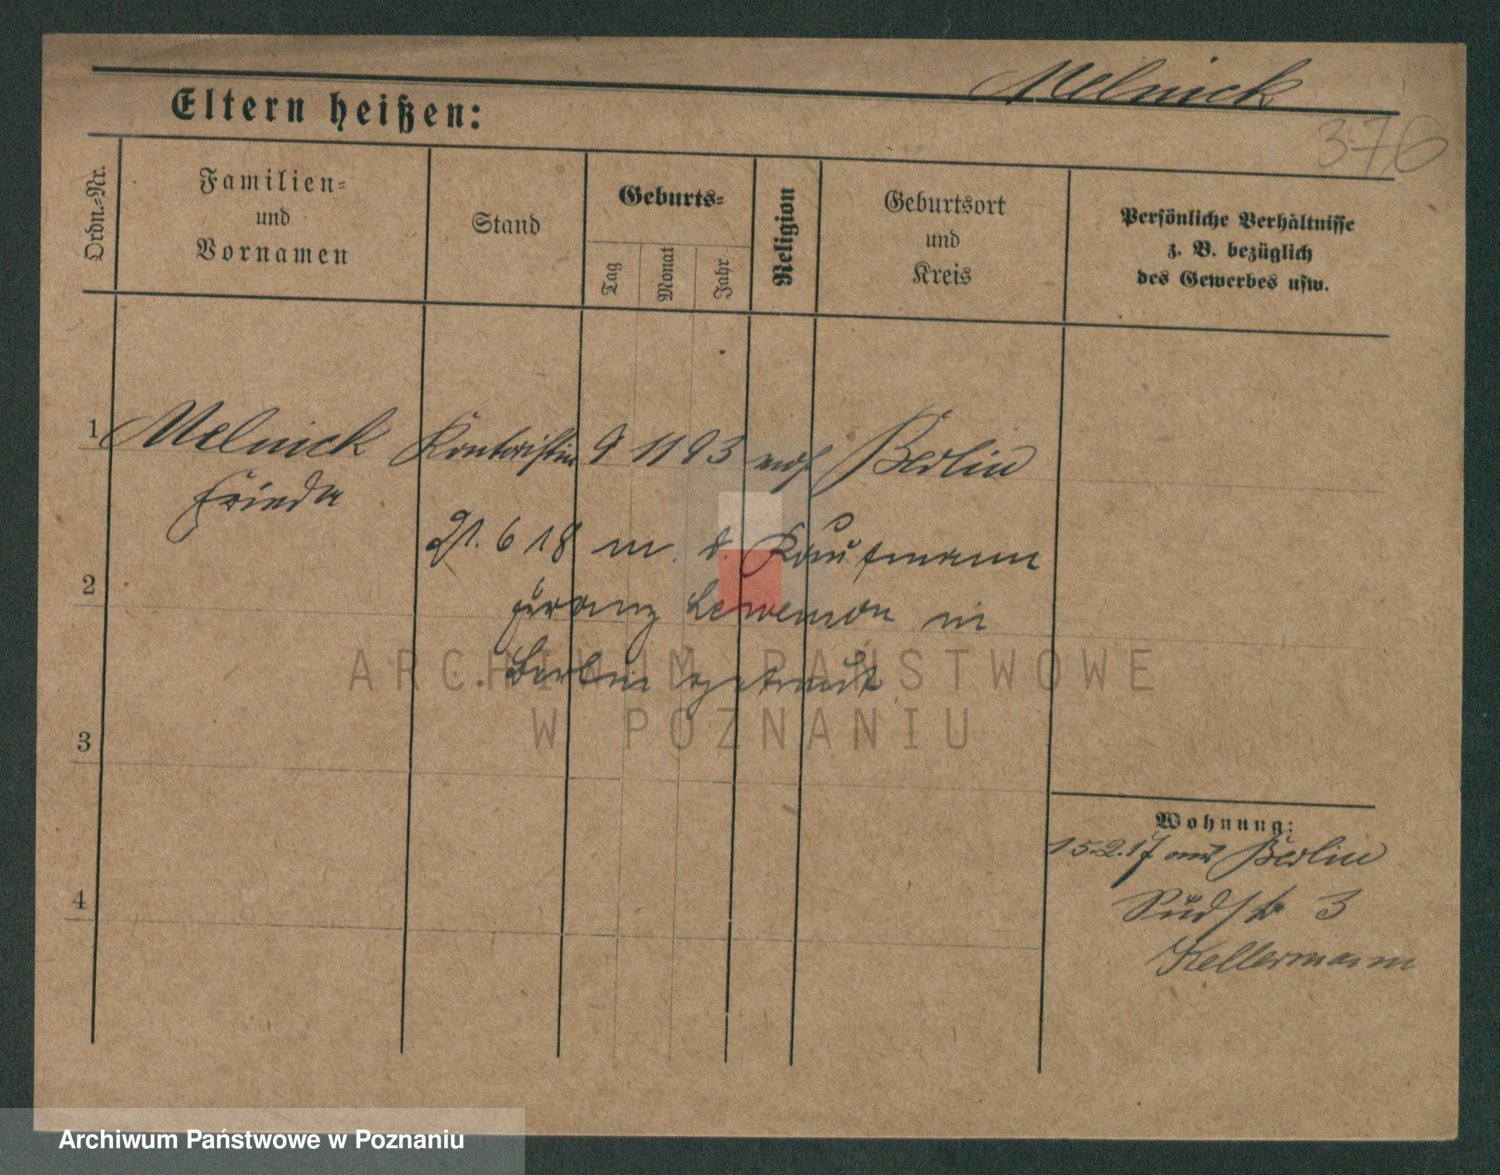 Melnick
376
Eltern heißen:
Ordn.-Nr.
Familien-
und
Vornamen
Stand
Geburts-
Tag
Monat
Jahr
Religion
Geburtsort
und
Kreis
Persönliche Verhältnisse
z. B. bezüglich
des Gewerbes usw.
1 Melnick Kontoristin 9 11 93 Berlin
Frieda
21. 6 18 m. d. Kaufmann
2
Franz in
Berlin getraut
ARCHIWUM PAŃSTWOWE
W POZNANIU
3
Wohnung:
15.2.17 aus Berlin
Südstr 3
Kellermann
4
Archiwum Państwowe w Poznaniu